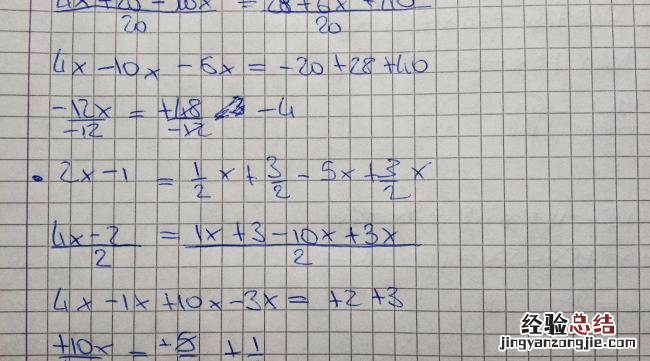 4x + 20 - 10x = 28 + 6x + 40
20 20
4x - 10x - 6x = -20 + 28 + 40
-12x/-12 = +48/-12 -4
• 2x - 1 = 1/2 x + 3/2 - 5x + 3/2 x
4x - 2/2 = 1x + 3 - 10x + 3x/2
4x - 1x + 10x - 3x = +2 + 3
+10x = +5 +1
经验总结
www.jingyanzongjie.com